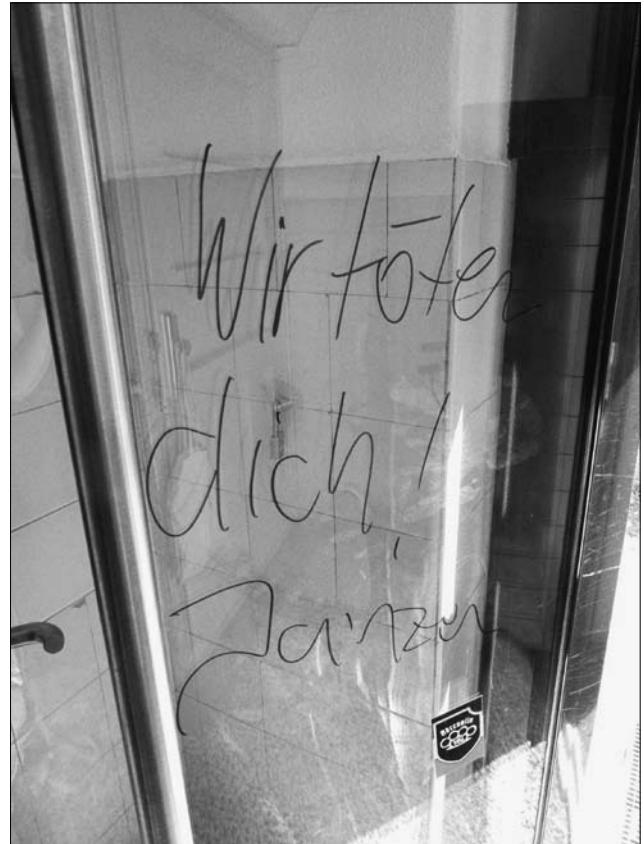 Wir töten
dich!
Janzen